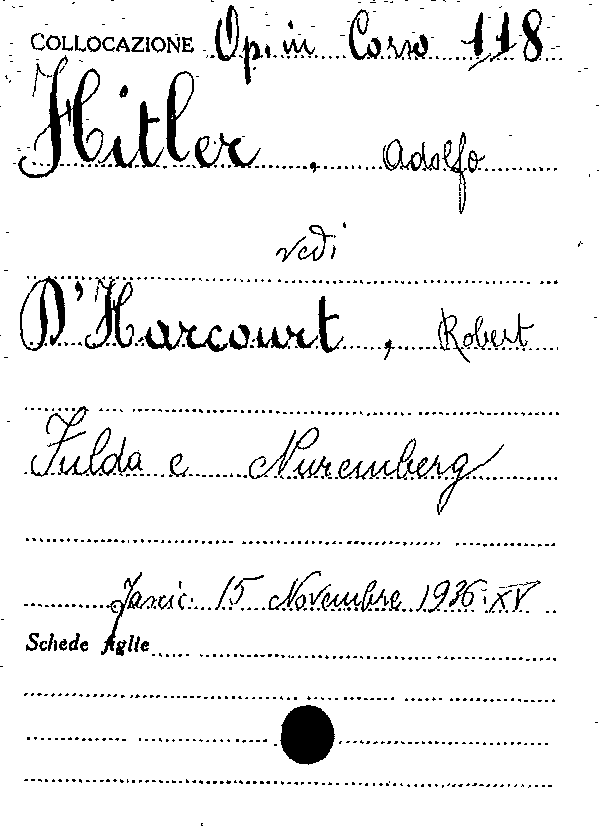 COLLOCAZIONE Op. in Corso 118
Hitler, Adolfo
vedi
D'Harcourt, Robert
Fulda e Nuremberg
Fascic. 15 Novembre 1936. XV
Schede figlie